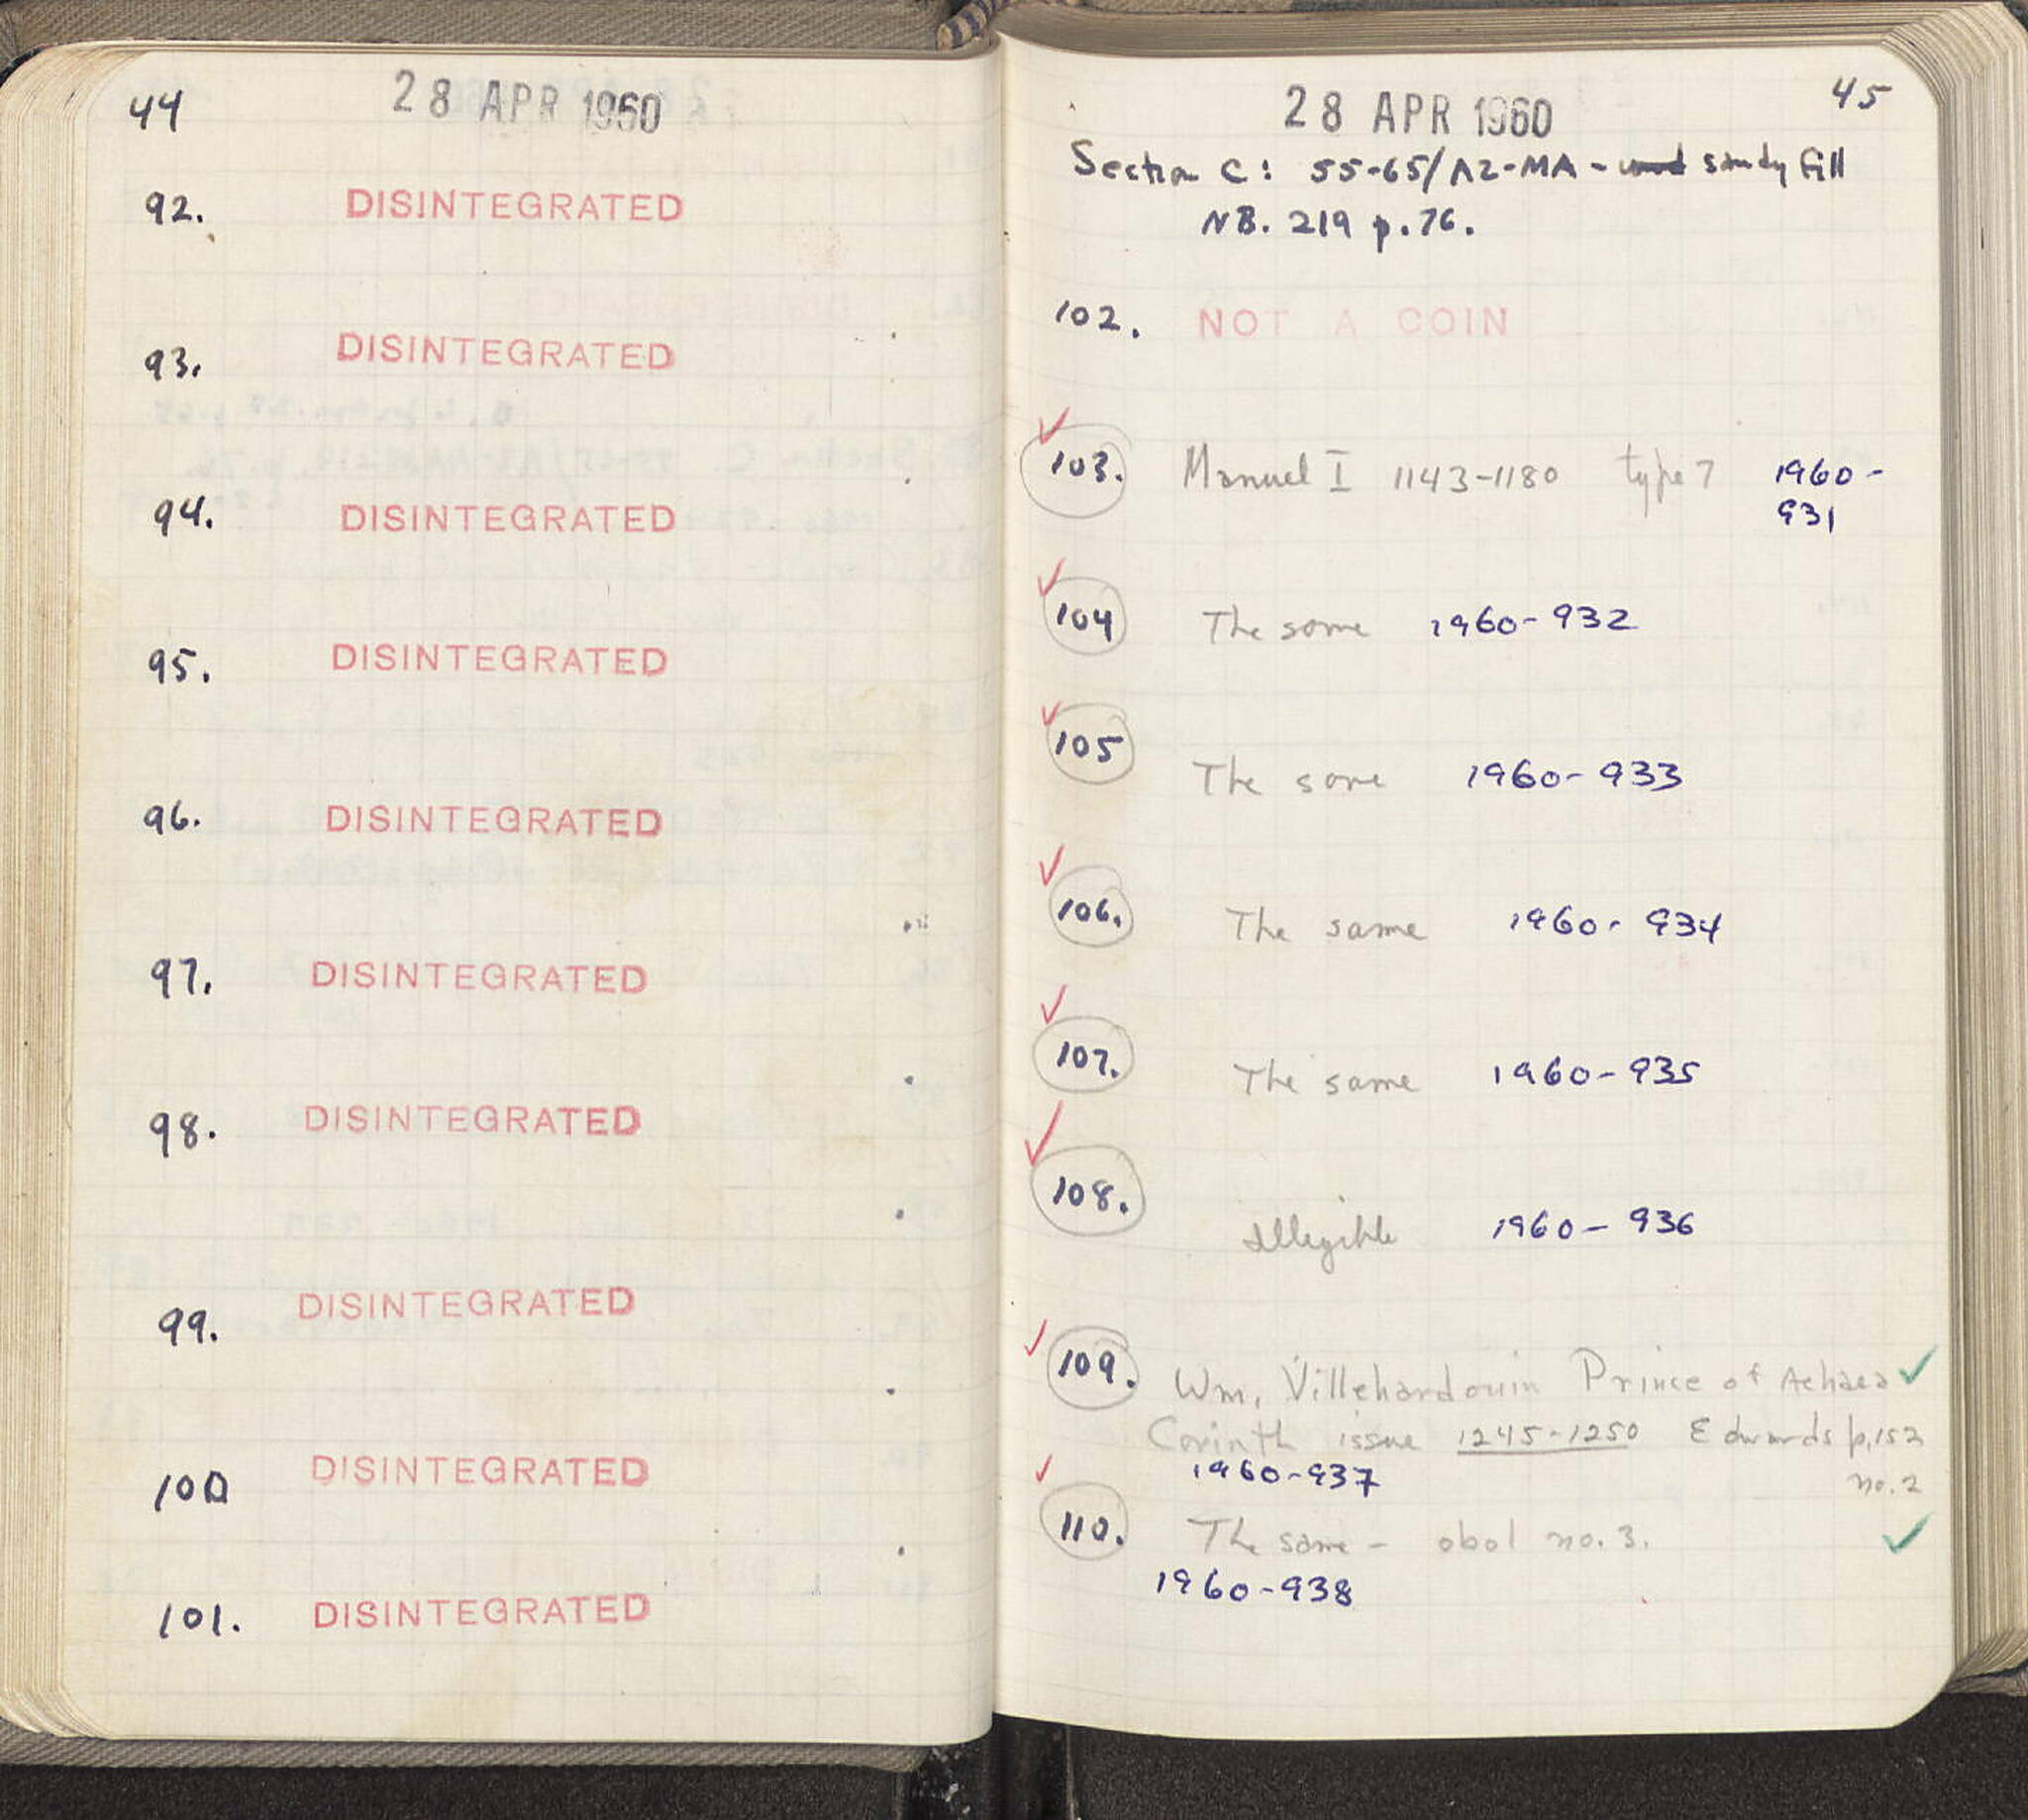 44
28 APR 1960
92. DISINTEGRATED
93. DISINTEGRATED
94. DISINTEGRATED
95. DISINTEGRATED
96. DISINTEGRATED
97. DISINTEGRATED
98. DISINTEGRATED
99. DISINTEGRATED
100 DISINTEGRATED
101. DISINTEGRATED
45
28 APR 1960
Section C: 55-65/AZ-MA - sandy fill
NB. 219 p.76.
102. NOT A COIN
103. Manuel I 1143-1180 type 7 1960-
931
104 The same 1960-932
105 The same 1960-933
106. The same 1960-934
107. The same 1960-935
108. Illegible 1960-936
109. Wm, Villehardouin Prince of Achaea ✓
Corinth issue 1245-1250 Edwards p.152
1960-937 no.2
110. The same - obol no.3. ✓
1960-938